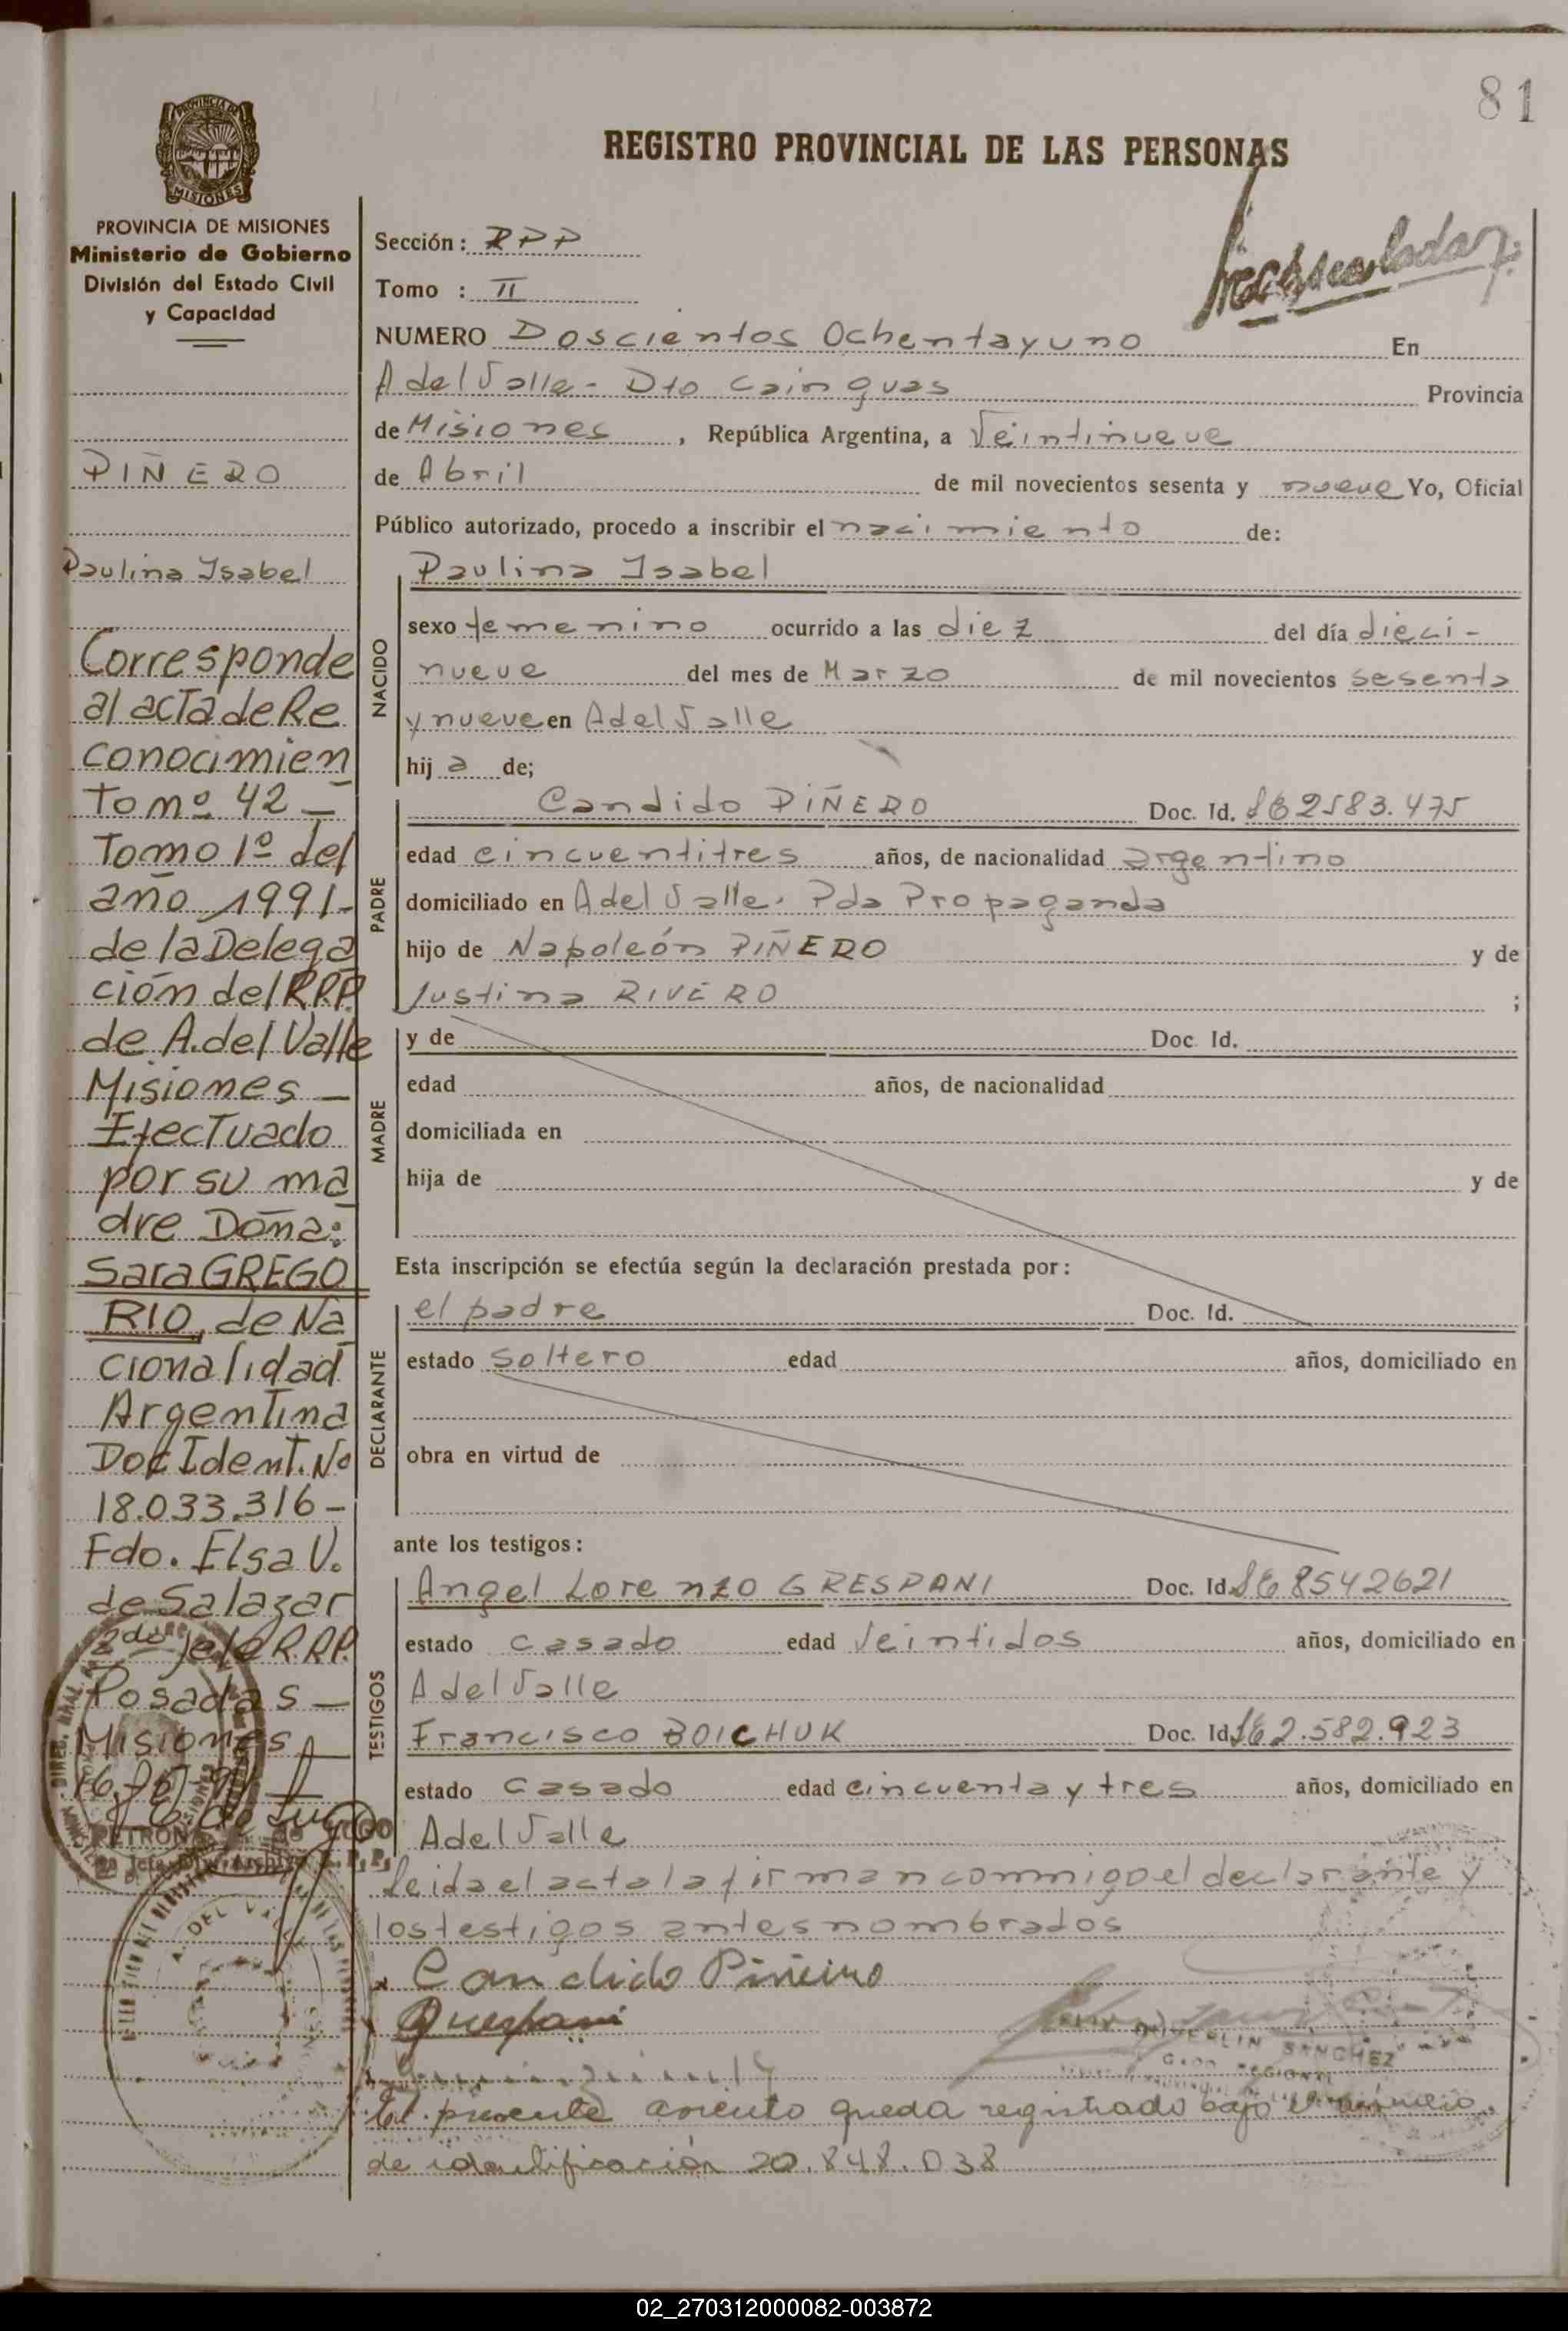 81
PROVINCIA DE
MISIONES
REGISTRO PROVINCIAL DE LAS PERSONAS
PROVINCIA DE MISIONES
Ministerio de Gobierno
División del Estado Civil
y Capacidad
PIÑERO
Paulina Isabel
Corresponde
al acta de Re
conocimien
to nº 42 —
Tomo 1º del
año 1991-
de la Delega
ción del RPP.
de A. del Valle
Misiones —
Efectuado
por su ma
dre Doña:
Sara GREGO
RIO, de Na
cionalidad
Argentina
Doc Ident. Nº
18.033.316-
Fdo. Elsa V.
de Salazar
2do jefe R.P.P.
Posadas —
Misiones
Sección: RPP
Tomo : II
NUMERO Doscientos Ochentayuno En
A del Valle - Dto Cainguas Provincia
de Misiones, República Argentina, a Veintinueve
de Abril de mil novecientos sesenta y nueve Yo, Oficial
Público autorizado, procedo a inscribir el nacimiento de:
NACIDO
Paulina Isabel
sexo femenino ocurrido a las diez del día dieci-
nueve del mes de Marzo de mil novecientos sesenta
y nueve en A del Valle
hij a de;
PADRE
Candido PIÑERO Doc. Id. 2583.475
edad cincuentitres años, de nacionalidad argentino
domiciliado en A del Valle. Pda Propaganda
hijo de Napoleón PIÑERO y de
Justina RIVERO ;
MADRE
y de Doc. Id.
edad años, de nacionalidad
domiciliada en
hija de y de
Esta inscripción se efectúa según la declaración prestada por:
DECLARANTE
el padre Doc. Id.
estado soltero edad años, domiciliado en
obra en virtud de
ante los testigos:
TESTIGOS
Angel Lorenzo GRESPANI Doc. Id. 8542621
estado casado edad Veintidos años, domiciliado en
A del Valle
Francisco BOICHUK Doc. Id. 2.582.923
estado casado edad cincuenta y tres años, domiciliado en
A del Valle
Leida el acta la firman conmigo el declarante y
los testigos antes nombrados
x Candido Piñeiro
SANCHEZ
El presente asiento queda registrado bajo el número
de identificación 20.848.038
A. DEL VALLE
02_270312000082-003872